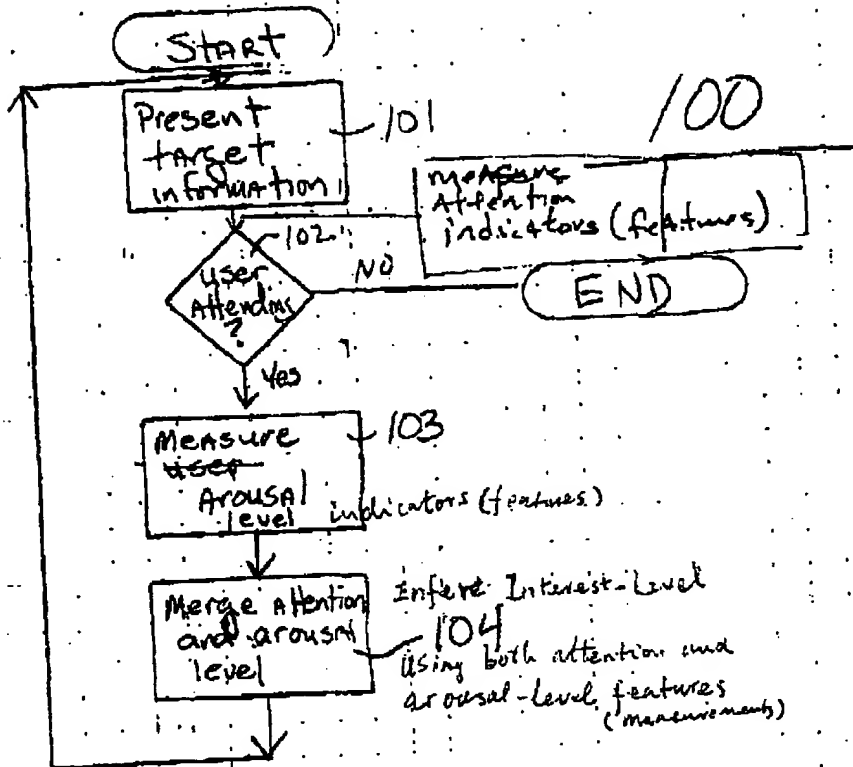 START
Present
target
information
101
100
measure
Attention
indicators (features)
102
user
Attending
?
NO
END
Yes
Measure
user
Arousal
level
indicators (features)
103
Merge Attention
and arousal
level
104
Infere Interest-Level
Using both attention and
arousal-level features
(measurements)